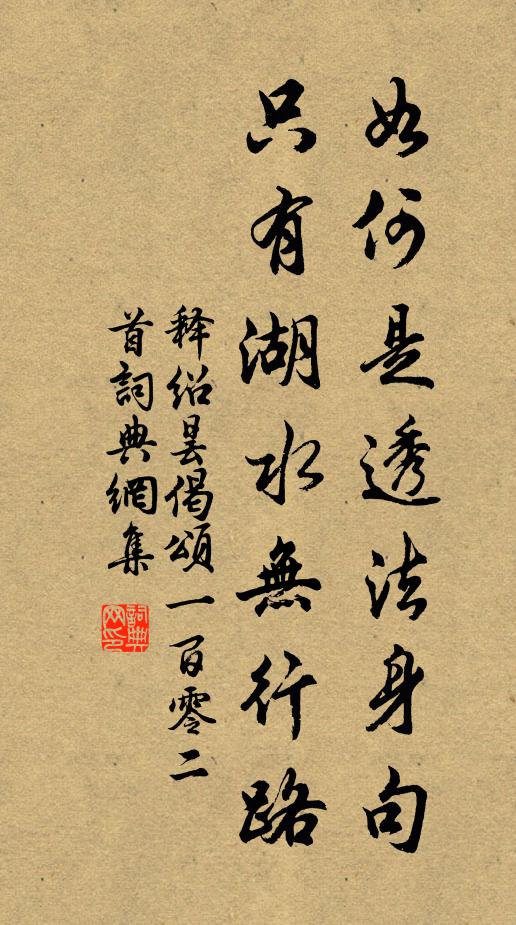 如何是透法身句
只有湖水無行路
释绍昙偈頌一百零二
首詞典網集
詞典網印